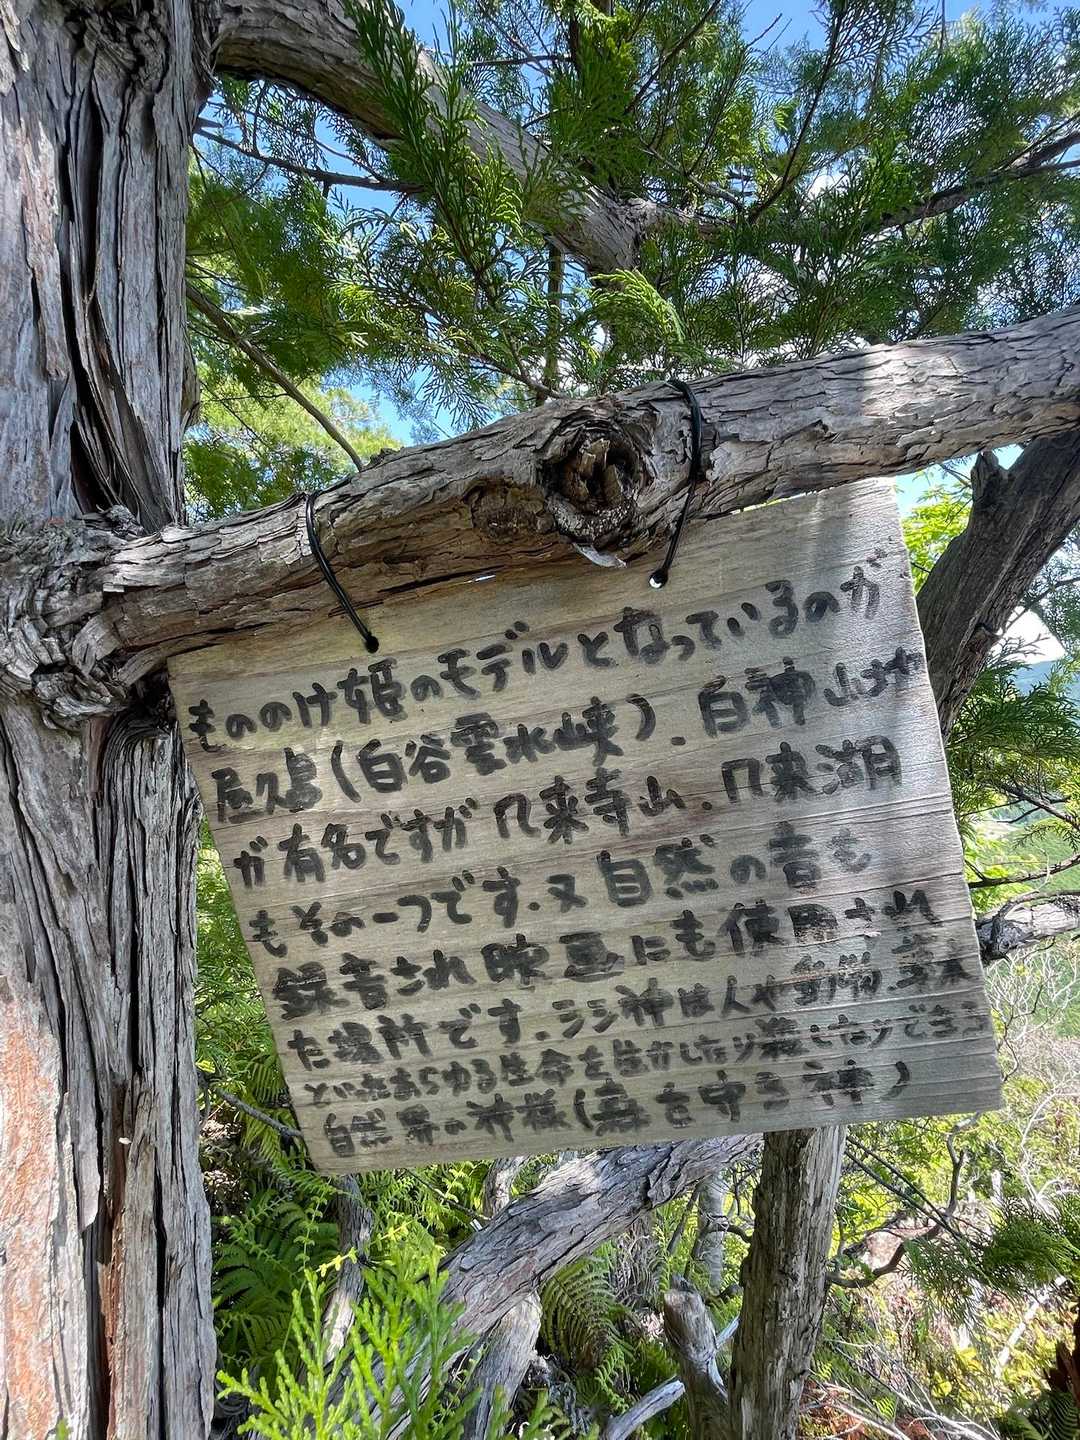 もののけ姫のモデルとなっているのが
屋久島(白谷雲水峡)、白神山地
が有名ですが 几来寺山、几来湖
もその一つです。又自然の音も
録音され映画にも使用され
た場所です。シシ神は人や動物、草木
といったあらゆる生命を生かしたり殺したりできる
自然界の神様(森を守る神)